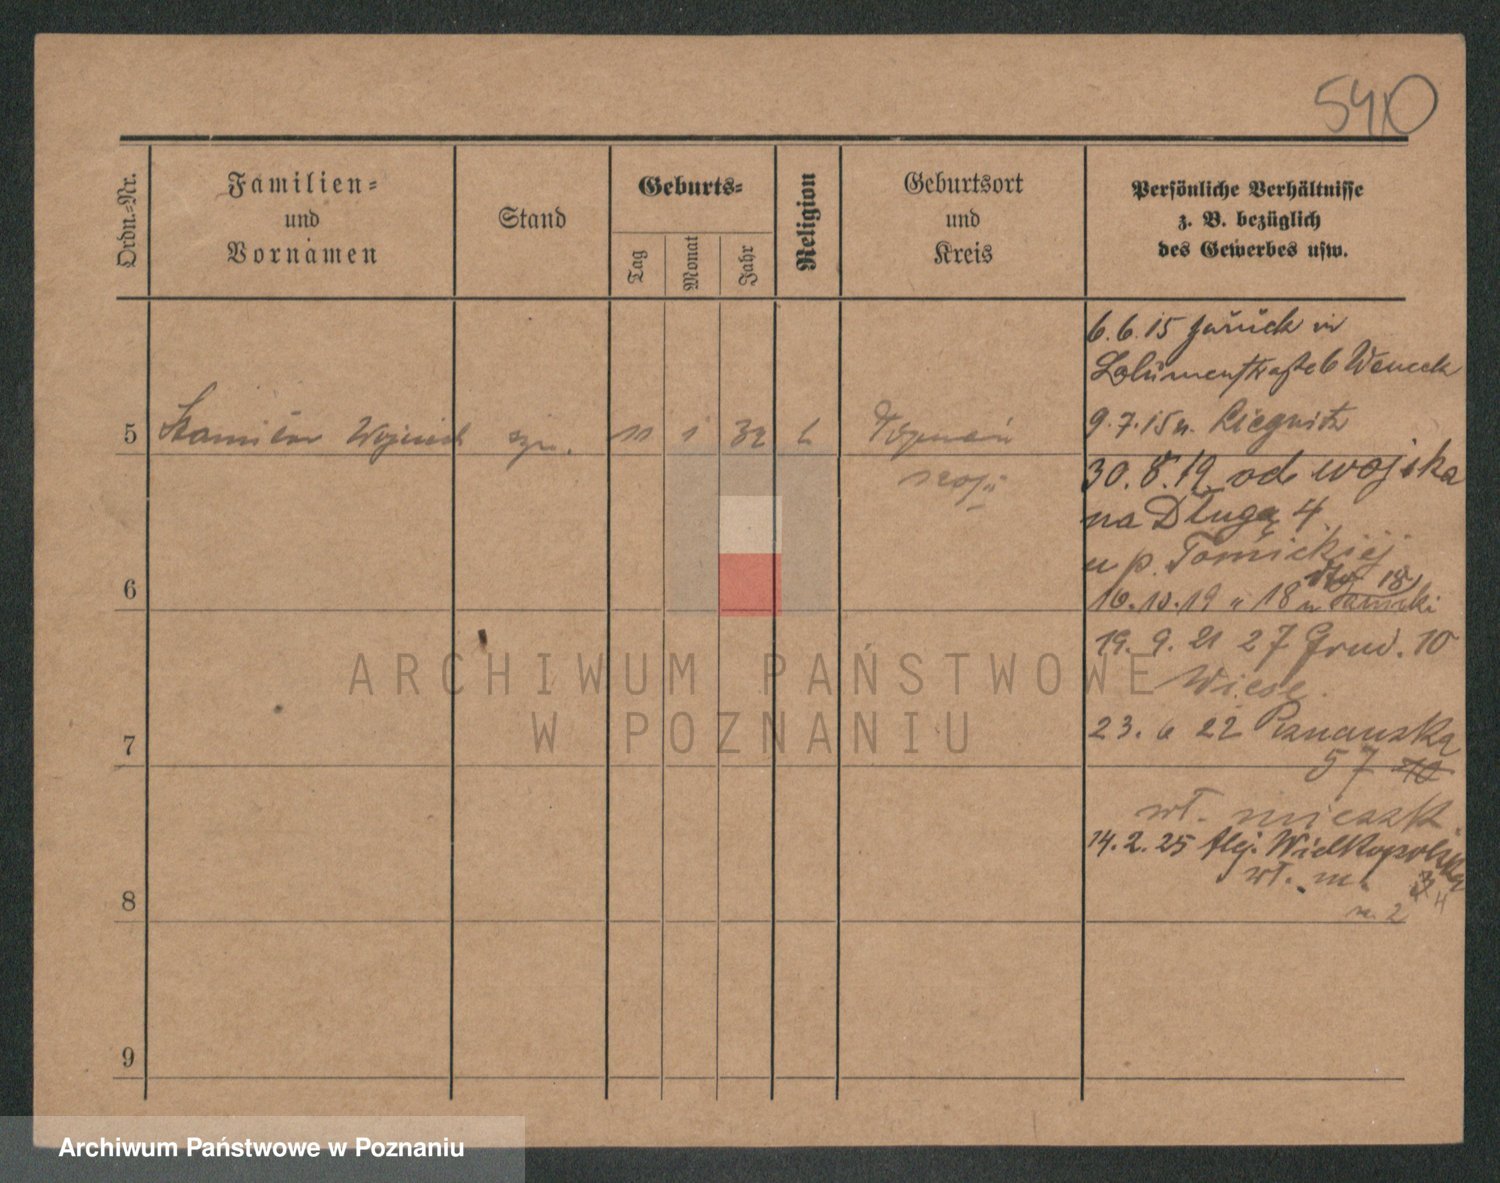 Ordn.-Nr.
Familien-
und
Vornamen
Stand
Geburts-
Tag
Monat
Jahr
Religion
Geburtsort
und
Kreis
Persönliche Verhältnisse
z. B. bezüglich
des Gewerbes usw.
6.6.15 zurück in
Weneck
5
11 1 32
Poznań
9.7.15 n. Liegnitz
30.8.19 od wojska
na Długą 4
u p. Tomickiej
6
16.10.19 " 18 u Tomicki
19. 9. 21 27 Grud. 10
Wiese.
7
23. 6 22 Poznańska
57 10
wł. mieszk
14.2.25 Alej. Wielkopolska
wł. m.
3
4
m. 2
8
9
ARCHIWUM PAŃSTWOWE
W POZNANIU
Archiwum Państwowe w Poznaniu